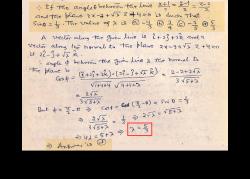 ∴ If the angle θ between the line (x+1)/1 = (y-1)/2 = (z-2)/2
and the plane 2x-y+√λ z+4=0 is such that
sin θ = 1/3. The value of λ is
A vector along the given line is î+2ĵ+2k̂ and a
vector along the normal to the plane 2x-y+√λ z+4=0
is 2î-ĵ+√λ k̂
∴ angle φ between the given line & the normal to
the plane is
cos φ = (î+2ĵ+2k̂)·(2î-ĵ+√λ k̂) / √1+4+4 √4+1+λ = 2-2+2√λ / 3√5+λ
= 2√λ / 3√5+λ
But θ = π/2 - φ ⇒ cos φ = cos(π/2-θ) = sin θ = 1/3
⇒ 2√λ / 3√5+λ = 1/3 ⇒ 2√λ = √5+λ
⇒ 4λ = 5+λ ⇒ λ = 5/3
⇒ Answer is